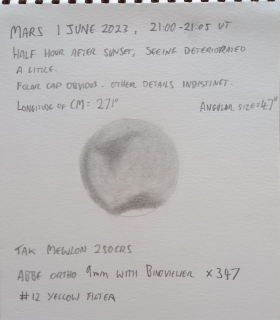 MARS 1 JUNE 2023, 21:00-21:05 UT
HALF HOUR AFTER SUNSET, SEEING DETERIORATED
A LITTLE.
POLAR CAP OBVIOUS. OTHER DETAILS INDISTINCT.
LONGITUDE OF CM = 271° ANGULAR SIZE = 4.7"
TAK MEWLON 250CRS
ABBE ORTHO 9mm WITH BINOVIEWER x 347
#12 YELLOW FILTER